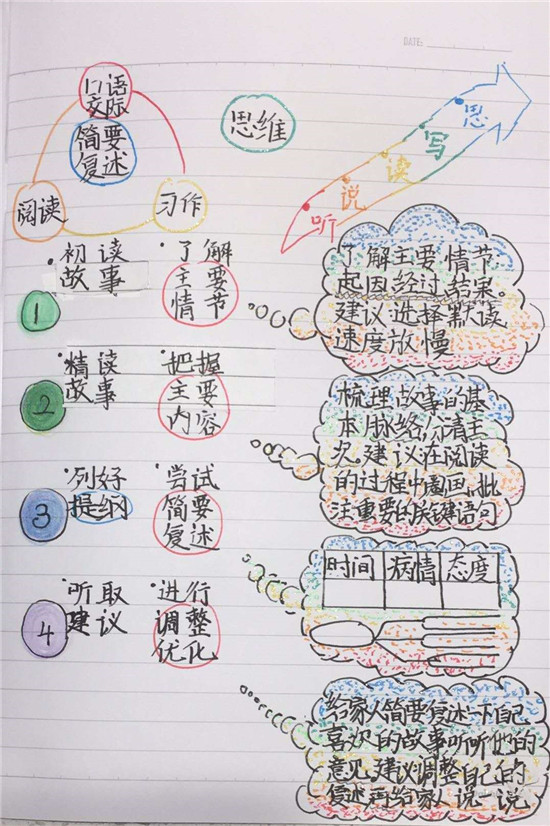 DATE:
口语
交际
简要
复述
阅读
习作
思维
听 说 读 写 思
1
·初读
故事
·了解
主要
情节
了解主要情节
起因经过结果。
建议选择默读
速度放慢
2
·精读
故事
·把握
主要
内容
梳理故事的基
本脉络,分清主
次.建议在阅读
的过程中圈画,批
注重要的关键语句
3
·列好
提纲
·尝试
简要
复述
时间 病情 态度
4
·听取
建议
·进行
调整
优化
给家人简要复述一下自己
喜欢的故事听听他的
意见.建议调整自己的
复述再给家人说一说